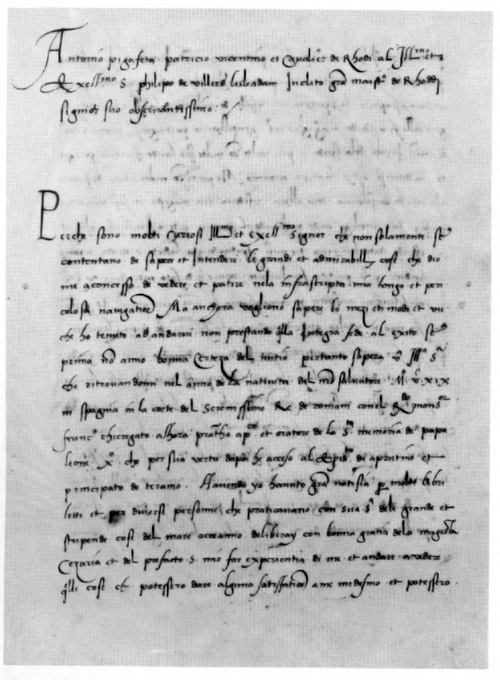 Antonio pigafeta patricio vicentino et Cavalier de Rhodi al Jllmo et
Exellmo S. philipo de villers lisleadam Inclito gra maistro de Rhoddi
signior suo observantissimo.
Perche sono molti curiosi Jllmo et exellmo signor che non solamente se
contentano de sapere et Intendere li grandi et admirabilli cose che dio
me a concesso de vedere et patire nela infrascripta mia longa et peri
colosa navigatione Ma anchora vogliono sapere li mezi et modi et vie
che ho tenuto ad andarvi non prestando q̃lla Integra fede al exito se
prima nõ anno bonna Certeza del initio pertanto sapera v. Jll. Sa
che ritrovandomi nel anno de la nativita del nro salvatore M. v. xix
in spagnia in la corte del Serenissimo Re de romani con el Rdo monsor
franco chieregato alhora protho apco et oratore de la Sta memoria de papa
leone Xo. che per sua vertu dapoi he acceso al epto de aprutino et
principato de teramo. Havendo yo havuto gra notitia per molti libri
letti et per diverse personne che praticavano con sua sa dele grande et
stupende cose del mare occeanno deliberay con bonna gratia dela magesta
Cezaria et del prefacto s. mio far experientia di me et andare a vedere
q̃lle cose che potessero dare alguna satisfatione a me medesmo et potessero